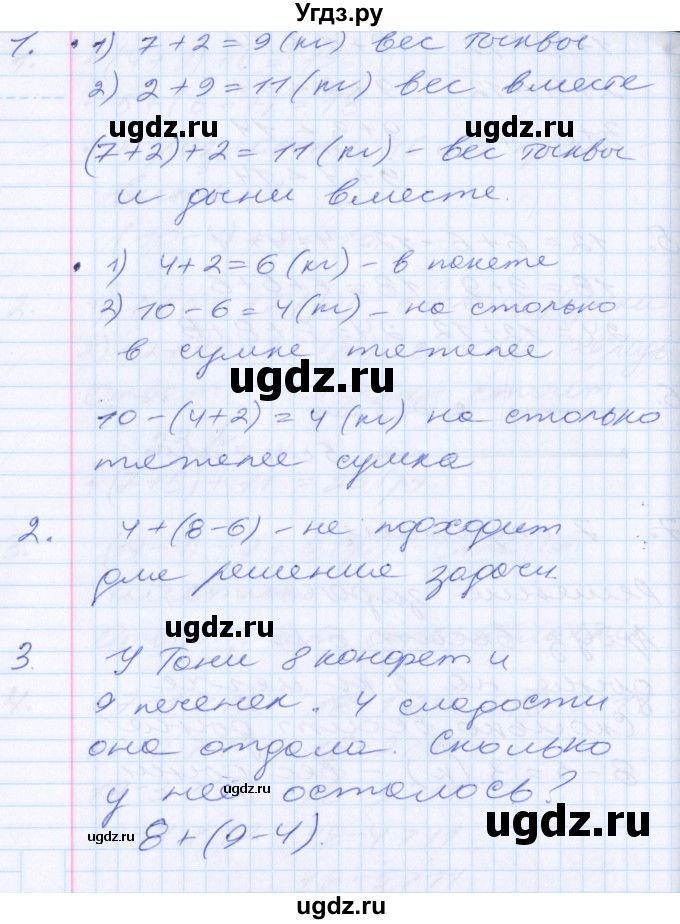 Угдз.ру
1. • 1) 7 + 2 = 9 (кг) вес тыквы
2) 2 + 9 = 11 (кг) вес вместе
ugdz.ru ugdz.ru
(7+2)+2 = 11 (кг) - вес тыквы
и дыни вместе.
• 1) 4+2=6 (кг) - в пакете
2) 10 - 6 = 4 (кг) - на столько
в сумке тяжелее
ugdz.ru
10 - (4+2) = 4 (кг) на столько
тяжелее сумка
2. 4 + (8-6) - не подходит
для решения задачи.
ugdz.ru
3. У Тони 8 конфет и
9 печенек. 4 сладости
она отдала. Сколько
у неё осталось?
ugdz.ru ugdz.ru ugdz.ru
8 + (9-4).
ugdz.ru